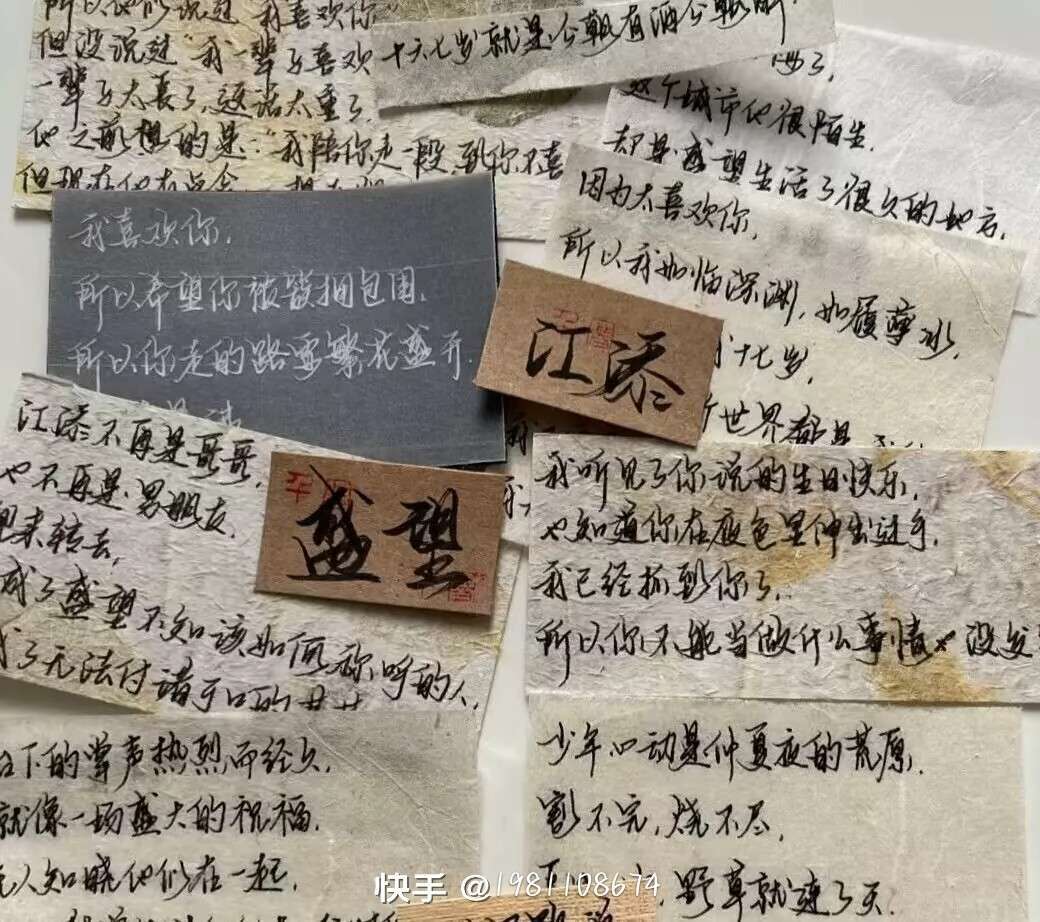 所以他们说过"我喜欢你"
但没说过"我一辈子喜欢
一辈子太长了,这话太重了
他之前想的是:"我陪你走一段,到你不喜
但现在他有点
十六七岁就是今朝有酒今朝醉
这个城市他很陌生,
却是盛望生活了很久的地方,
因为太喜欢你,
所以我如临深渊,如履薄冰,
十七岁,
世界都是
我喜欢你,
所以希望你被簇拥包围,
所以你走的路要繁花盛开,
江添
江添不再是哥哥,
也不再是男朋友,
来转去,
成了盛望不知该如何称呼的人,
成了无法付诸于口的
盛望
我听见了你说的生日快乐,
也知道你在夜色里伸出过手,
我已经抓到你了,
所以你不能当做什么事情都没发
台下的掌声热烈而经久,
就像一场盛大的祝福,
无人知晓他们在一起,
少年心动是仲夏夜的荒原,
割不完,烧不尽,
野草就连了天,
快手 @1981108674